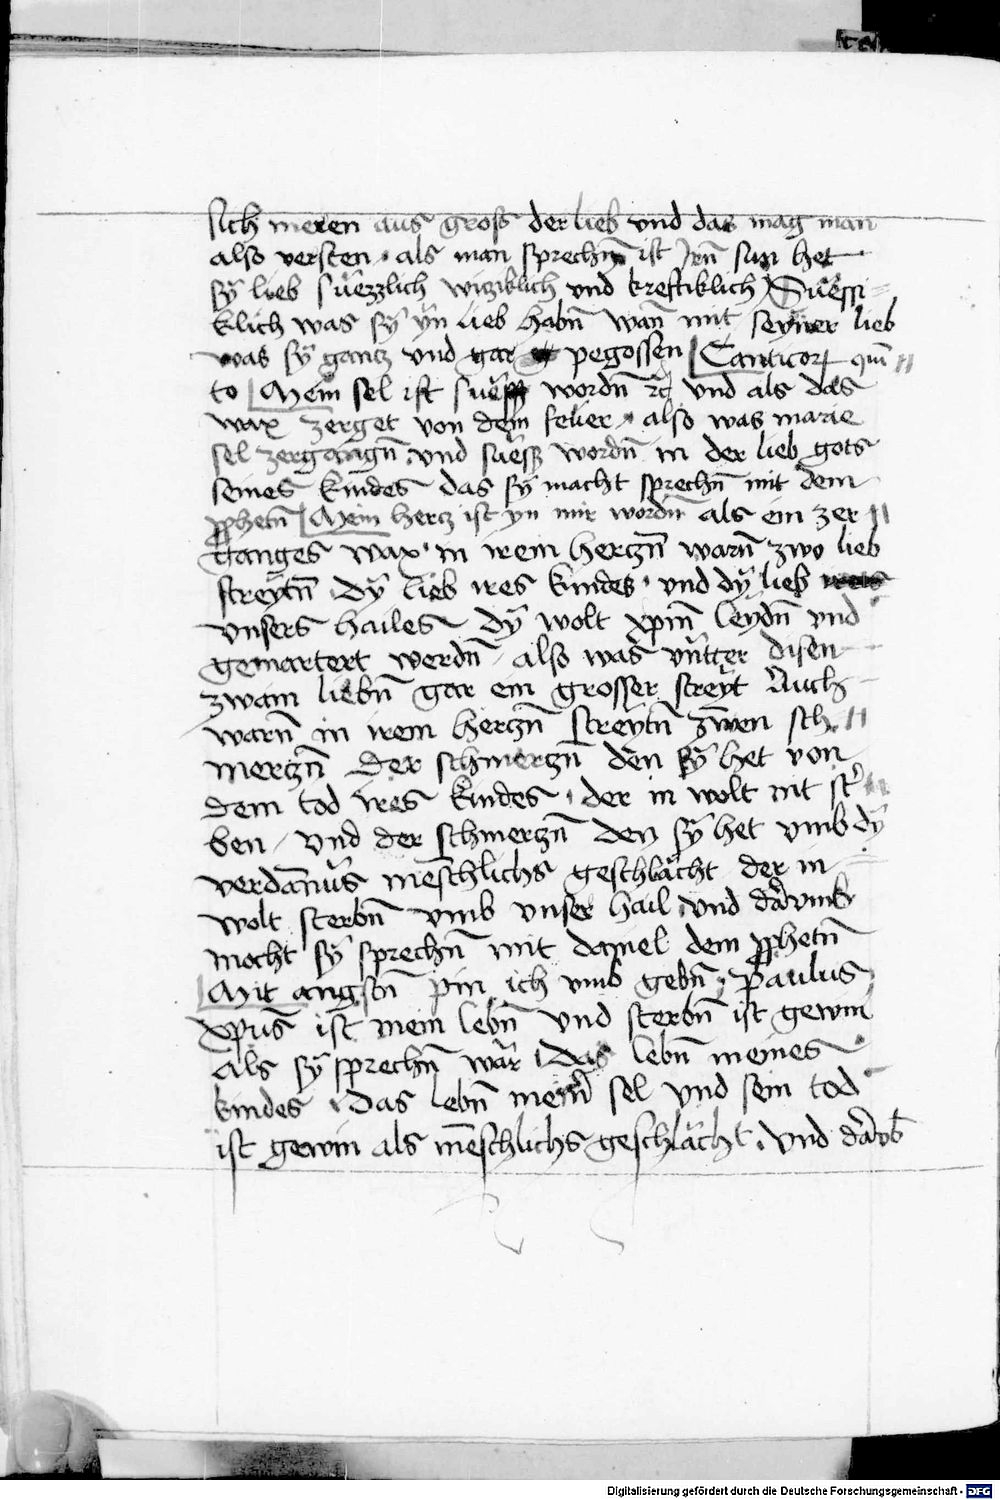 sich meren aus gross der lieb vnd das mag man
also versten · als man sprechn̄ ist Irn̄ sun het
sÿ lieb süezzlich witziklich vnd kreftiklich Süessi=
klich was sÿ ÿn lieb habn̄ wan̄ mit seyner lieb
was sÿ gantz vnd gar pegossen Canticoꝝ quī
to Mein sel ist süess wordn̄ ꝛc̄ vnd als das
wax zerget von dem feuer · also was marie
sel zergangn̄ vnd süess wordn̄ in der lieb gots
seines kindes das sÿ macht sprechn̄ mit dem
pphetn̄ Mein hertz ist yn mir wordn̄ als ein zer
ganges wax · in irem hertzn̄ warn̄ zwo lieb
streÿtn̄ · dÿ lieb ires kindes · vnd dÿ lieb
vnsers hailes dÿ wolt xpm̄ leÿdn̄ vnd
gemartert werdn̄ · also was vntter disen
zwain liebn̄ gar ein grosser streÿt Auch
warn̄ in irem hertzn̄ streytn̄ zwen sch
mertzn̄ der schmertzn̄ den sÿ het von
dem tod ires kindes · der in wolt nit st'
ben / vnd der schmertzn̄ den sÿ het vmb dÿ
verdānüs mēschlichs geschlächt der in
wolt sterbn̄ vmb vnser hail vnd darvmb
mocht sÿ sprechn̄ mit daniel dem pphetn̄
Mit angstn̄ pin ich vmb gebn̄ · Paulus
xpūs ist mein lebn̄ vnd sterbn̄ ist gewin
als sÿ sprechn̄ wär · das lebn̄ meines
kindes · das lebn̄ mein' sel vnd sein tod
ist gewin als mēschlichs geschlächt · vnd darvb
Digitalisierung gefördert durch die Deutsche Forschungsgemeinschaft - DFG